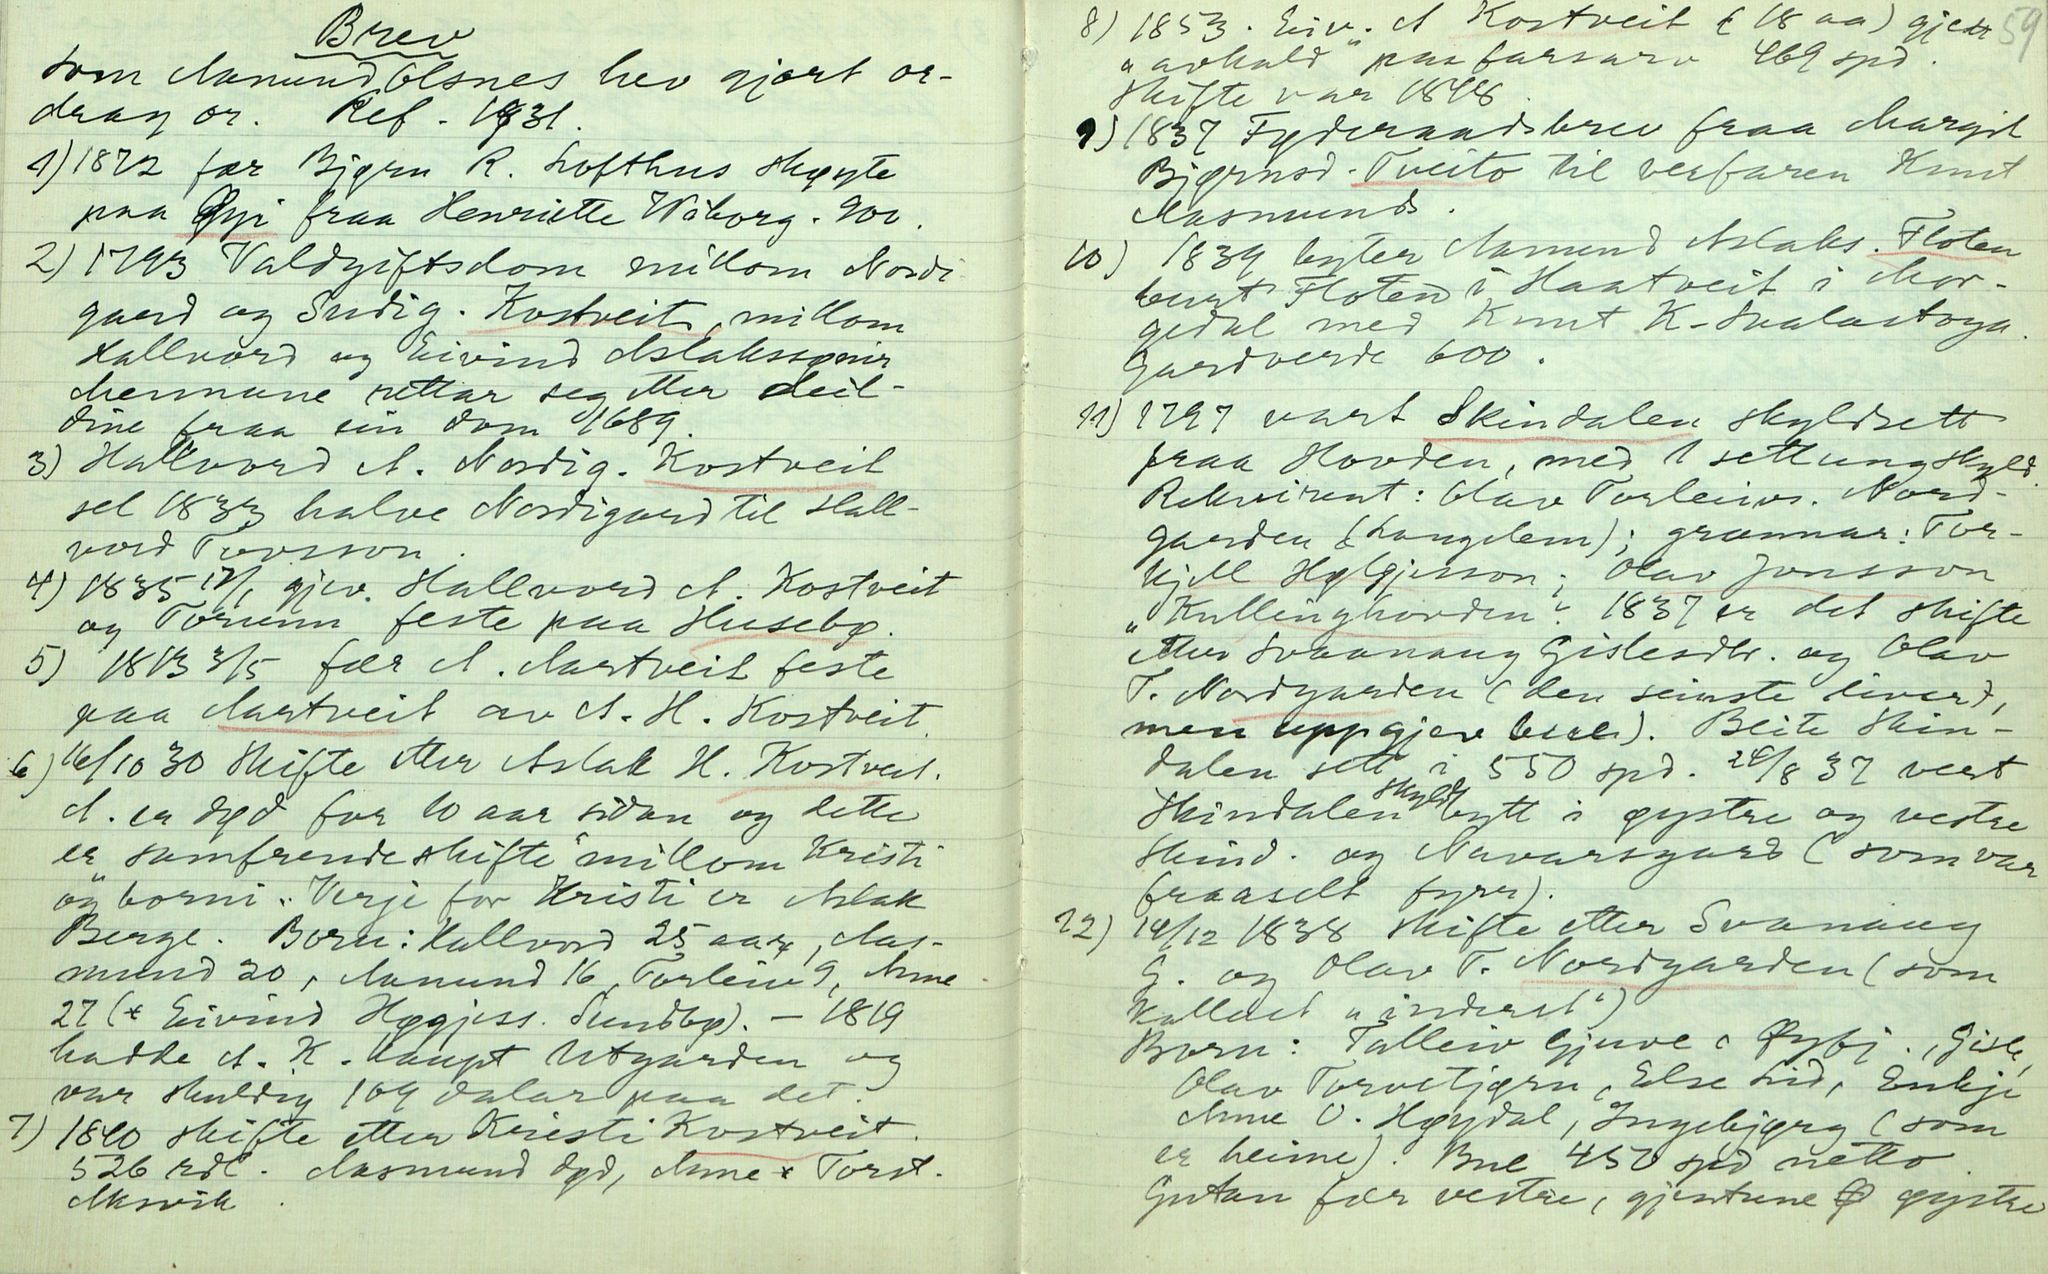 Brev
som Aamund Olsnes hev gjort or-
drag or. Ref. 1931.
1) 1872 fær Bjørn R. Lofthus skøyte
paa Øyi fraa Henriette Wiborg. 900.
2) 1793 Valdgiftsdom millom Nordi
gaard og Sudig. Kostveit, millom
Hallvord og Eivind Aslakssønir
Mennane rettar seg etter deil-
dine fraa ein dom 1689.
3) Hallvord A. Nordig. Kostveit
sel 1833 halve Nordigard til Hall-
vord Tovsson.
4) 1835 17/1 gjev. Hallvord A. Kostveit
og Torunn feste paa Husebø.
5) 1813 3/5 fær A. Aartveit feste
paa Aartveit av A. H. Kostveit.
6) 16/10 30 Skifte etter Aslak H. Kostveit.
A. er død for 10 aar sidan og dette
er "samfrendeskifte" millom Kristi
og borni. Verje for Kristi er Aslak
Berge. Born: Hallvord 25 aar, Aas-
mund 20, Aamund 16, Torleiv 9, Anne
27 (* Eivind Høgjess. Sundbø). – 1819
hadde A. K. kaupt Utgarden og
var skuldig 109 dalar paa det.
7) 1840 skifte etter Kristi Kostveit.
526 rdl. Aasmund død, Anne * Torst.
Aksvik.
59
8) 1853. Eiv. A Kostveit (18 aa) gjer
"avkald" paa farsarv 469 spd.
Skifte var 1848.
9) 1837 Fyderaadsbrev fraa Margit
Bjørnsd. Tveito til verfaren Knut
Aasmunds.
10) 1839 byter Aamund Aslaks. Floten
burt Floten i Haatveit i Mor-
gedal med Knut K. Svalastoga.
Gardverde 600.
11) 1797 vart Skindalen skyldsett
fraa Hovden, med 1 settung skyld.
Rekvirent: Olav Torleivs. Nord-
gaarden (Langelem); grannar: Tor-
kjell Helgjesson, Olav Jonsson
"Kullinghovden". 1837 er det skifte
etter Svaanaug Gislesdtr. og Olav
T. Nordgarden (den seinste liver),
men uppgjev buet). Beite Skin-
dalen sett i 550 spd. 28/8 37 vert
Skindalen skyldbytt i øystre og vestre
Skind. og Navarsgard (som var
fraaselt fyrr).
12) 19/12 1838 skifte etter Svanaug
G. og Olav T. Nordgarden (som
kallast "inderst")
Born: Talleiv Gjuve i Øyfj., Gisle,
Olav Torvetjørn, Else Lid, Enkje
Anne O. Høydal, Ingebjørg (som
er heime). Bue 450 spd netto.
Gutan fær vestre, gjentune øystre